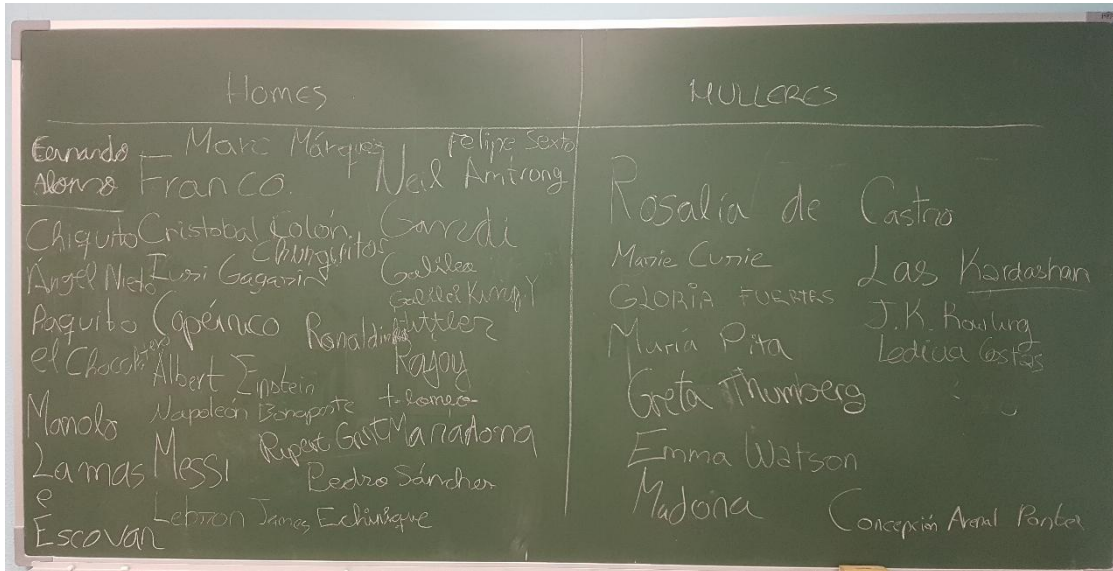 Homes
Fernando
Alonso
Marc Márquez
Felipe Sexto
Franco.
Neil Amtrong
Chiquito
Cristobal Colón,
Gandi
Chunguitos
Ángel Nieto
Iuri Gagarin
Galilea
Galilei
Paquito
el Chocolatero
Copérnico
Ronaldinho
Hittler
Albert Einstein
Rajoy
Manolo
Lamas
e
Escovar
Napoleón Bonaparte
Messi
Rupert Grint
Maradona
Pedro Sánchez
Lebron James
Echinique
MULLERES
Rosalía de Castro
Marie Curie
Las Kardashan
GLORIA FUERTES
J.K. Rowling
María Pita
Ledicia Costas
Greta Thumberg
Emma Watson
Madona
Concepción Arenal Ponte